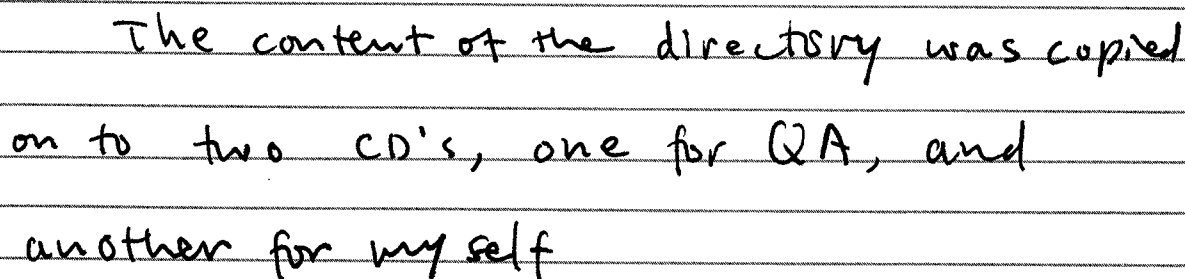 The content of the directory was copied
on to two CD's, one for QA, and
another for my self